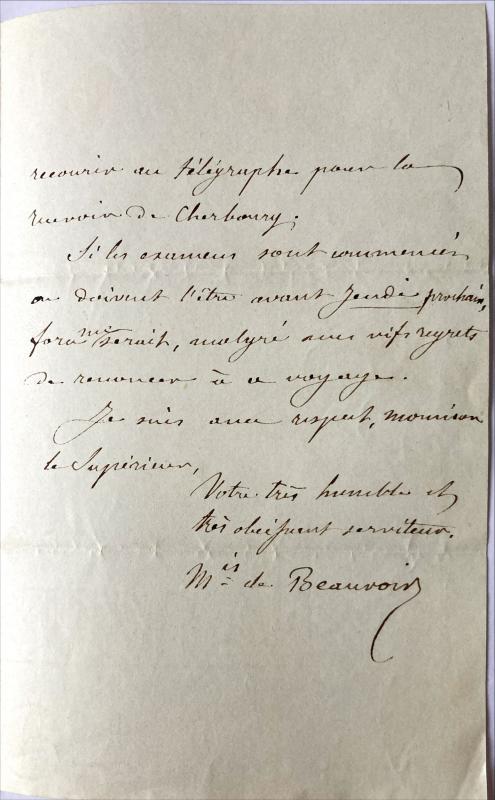 recourir au télégraphe pour la
recevoir de Cherbourg.
Si les examens sont commencés
ou doivent l'être avant Jeudi prochain,
force me serait, malgré mes vifs regrets
de renoncer à ce voyage.
Je suis avec respect, monsieur
le Supérieur,
Votre très humble et
très obéissant serviteur.
Mis de Beauvoir